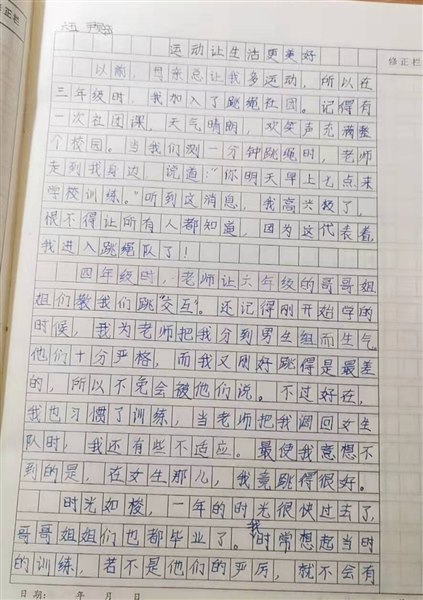 运动让生活更美好
修正栏
以前，母亲总让我多运动，所以在
三年级时，我加入了跳绳社团。记得有
一次社团课，天气晴朗，欢笑声充满整
个校园。当我们测一分钟跳绳时，老师
走到我身边，说道：“你明天早上七点来
学校训练。”听到这消息，我高兴极了，
恨不得让所有人都知道，因为这代表着，
我进入跳绳队了！
四年级时，老师让六年级的哥哥姐
姐们教我们跳“交互”。还记得刚开始学的
时候，我为老师把我分到男生组而生气
他们十分严格，而我又刚好跳得是最差
的，所以不免会被他们说。不过好在，
我也习惯了训练，当老师把我调回女生
队时，我还有些不适应。最使我意想不
到的是，在女生那儿，我竟跳得很好。
时光如梭，一年的时光很快过去了，
哥哥姐姐们也都毕业了。我时常想起当时
的训练，若不是他们的严厉，就不会有
日期： 年 月 日